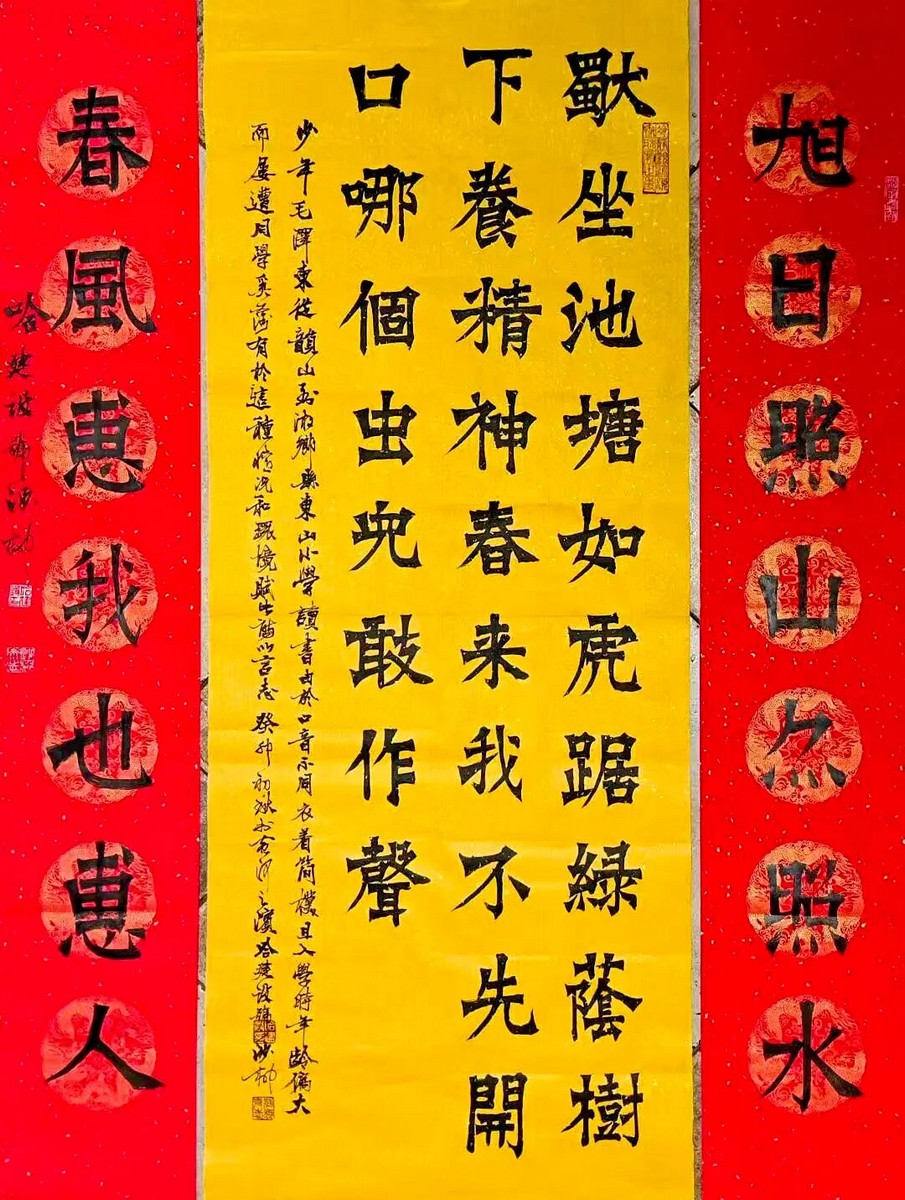 旭日照山亦照水
獨坐池塘如虎踞綠蔭樹
下養精神春来我不先開
口哪個虫兒敢作聲
少年毛澤東從韶山至湘鄉縣東山小學讀書由於口音不同衣着简樸且入學時年齡偏大
而屡遭同學奚落有於這種情况和環境賦此以言志癸卯初秋於黄河之濱哈建設
春風惠我也惠人
哈建設